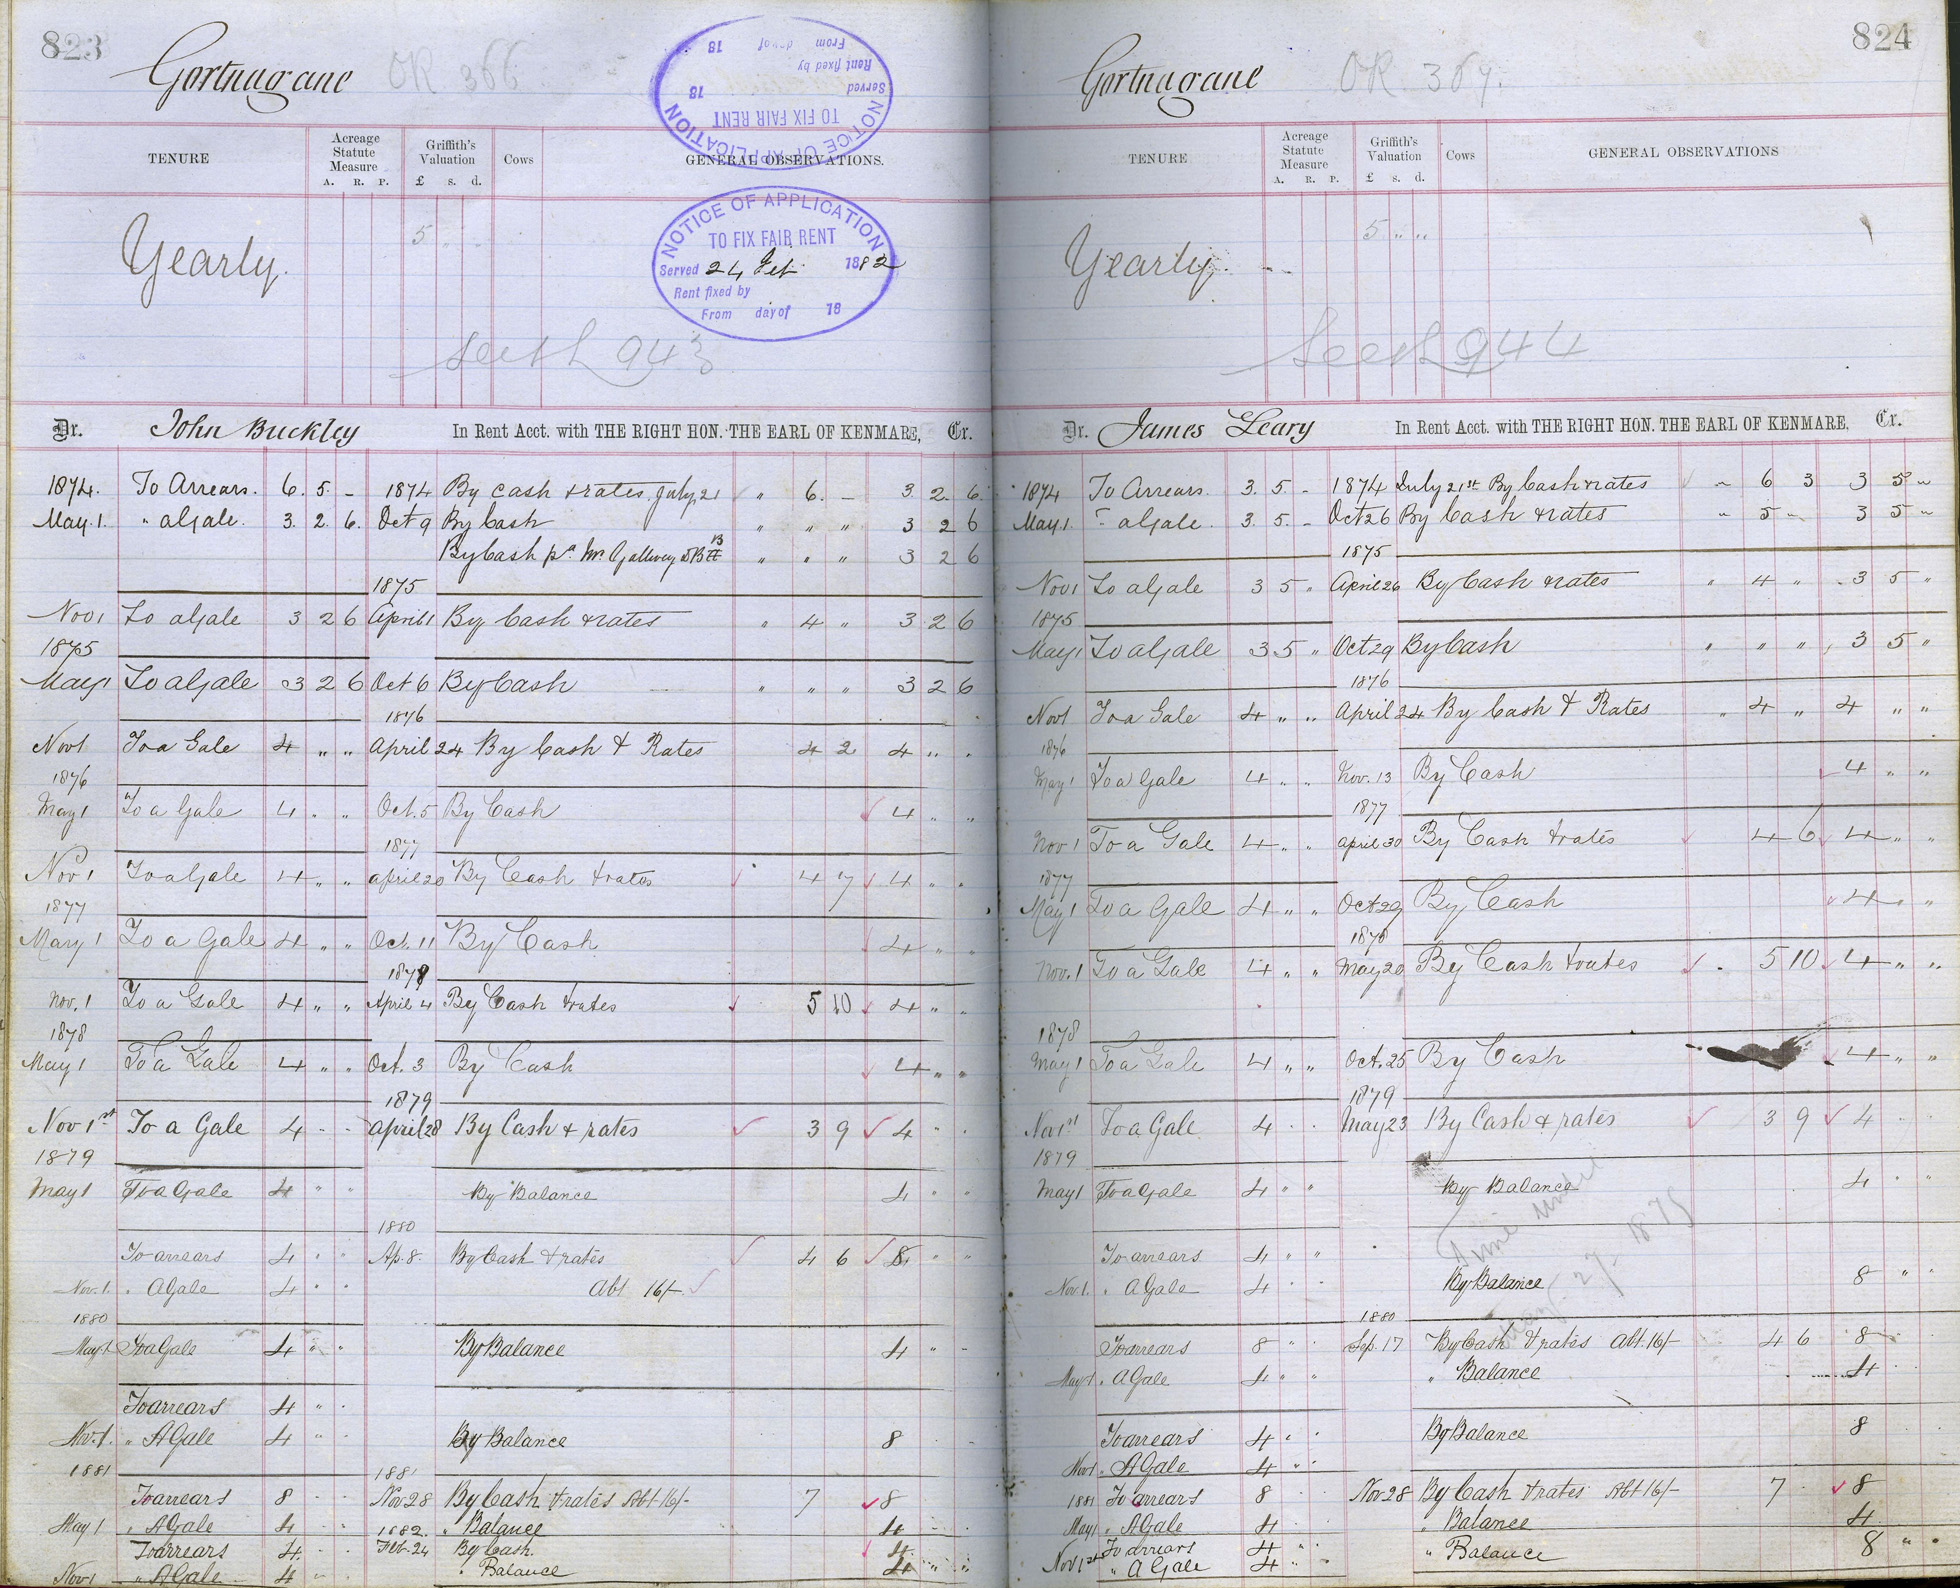 823
Gortnagane OR 366
NOTICE OF APPLICATION
TO FIX FAIR RENT
Served 18
Rent fixed by
From day of 18
TENURE Acreage Statute Measure A. R. P. Griffith's Valuation £ s. d. Cows GENERAL OBSERVATIONS.
Yearly. 5 " "
NOTICE OF APPLICATION
TO FIX FAIR RENT
Served 24 Feb 1882
Rent fixed by
From day of 18
943
Dr. John Buckley In Rent Acct. with THE RIGHT HON. THE EARL OF KENMARE, Cr.
1874. To Arrears. 6. 5. - 1874 By cash & rates July 21 " 6. - 3. 2. 6.
May. 1. " a Gale. 3. 2. 6. Oct 9 By Cash " " " 3 2 6
By Cash pr. Mr Galwey " " " 3 2 6
1875
Nov 1 To a Gale 3 2 6 April 1 By Cash & rates " 4 " 3 2 6
1875
May 1 To a Gale 3 2 6 Oct 6 By Cash " " " 3 2 6
1876
Nov 1 To a Gale 4 " " April 24 By Cash & Rates 4 2 4 " "
1876
May 1 To a Gale 4 " " Oct. 5 By Cash 4 " "
1877
Nov 1 To a Gale 4 " " april 20 By Cash & rates 4 7 4 " "
1877
May 1 To a Gale 4 " " Oct. 11 By Cash 4 " "
1878
Nov. 1 To a Gale 4 " " April 4 By Cash & rates 5 10 4 " "
1878
May 1 To a Gale 4 " " Oct. 3 By Cash 4 " "
1879
Nov 1st To a Gale 4 - - April 28 By Cash & rates 3 9 4 " "
1879
May 1 To a Gale 4 " " By Balance 4 " "
1880
To arrears 4 " " Ap. 8. By Cash & rates 4 6 8 " "
Nov. 1. " A Gale 4 " " Abt 16/-
1880
May 1 To a Gale 4 " " By Balance 4 " -
To arrears 4 " "
Nov. 1. " A Gale 4 " By Balance 8 - -
1881 1881
To arrears 8 - - Nov 28 By Cash & rates Abt 16/- 7 8
May 1 " A Gale 4 - - 1882. " Balance 4 - -
To arrears 4. Feb. 24 By Cash. 4
Nov 1 " A Gale 4 " Balance 4 " "
824
Gortnagane OR 367.
TENURE Acreage Statute Measure A. R. P. Griffith's Valuation £ s. d. Cows GENERAL OBSERVATIONS
Yearly. 5 " "
944
Dr. James Leary In Rent Acct. with THE RIGHT HON. THE EARL OF KENMARE, Cr.
1874 To Arrears. 3. 5. - 1874 July 21st By Cash & rates " 6 3 3 5 "
May. 1. " a Gale. 3. 5. - Oct 26 By Cash & rates " 5 " 3 5 "
1875
Nov 1 To a Gale 3 5 " April 26 By Cash & rates " 4 " 3 5 "
1875
May 1 To a Gale 3 5 " Oct 29 By Cash " " " 3 5 "
1876
Nov 1 To a Gale 4 " " April 24 By Cash & Rates " 4 " 4 " "
1876
May 1 To a Gale 4 " " Nov. 13 By Cash 4 " "
1877
Nov 1 To a Gale 4 " " april 30 By Cash & rates 4 6 4 " "
1877
May 1 To a Gale 4 " " Oct 29 By Cash 4 " "
1878
Nov. 1 To a Gale 4 " " May 20 By Cash & rates 5 10 4 " "
1878
May 1 To a Gale 4 " " Oct. 25 By Cash 4 " "
1879
Nov 1st To a Gale 4 - - May 23 By Cash & rates 3 9 4 -
1879
May 1 To a Gale 4 " " By Balance 4 " "
Time until
May 27. 1879
To arrears 4 " "
Nov. 1. " A Gale 4 - - By Balance 8 " "
1880
To arrears 8 " - Sep. 17 By Cash & rates Abt. 16/- 4 6 8
May 1. " A Gale 4 " " " Balance 4
To arrears 4 " " By Balance 8
Nov 1 " A Gale 4 " "
1881 To arrears 8 Nov 28 By Cash & rates Abt 16/- 7 8
May 1 " A Gale 4 - - " Balance 4
To arrears 4 " " " Balance 8 " "
Nov 1st " A Gale 4 " "